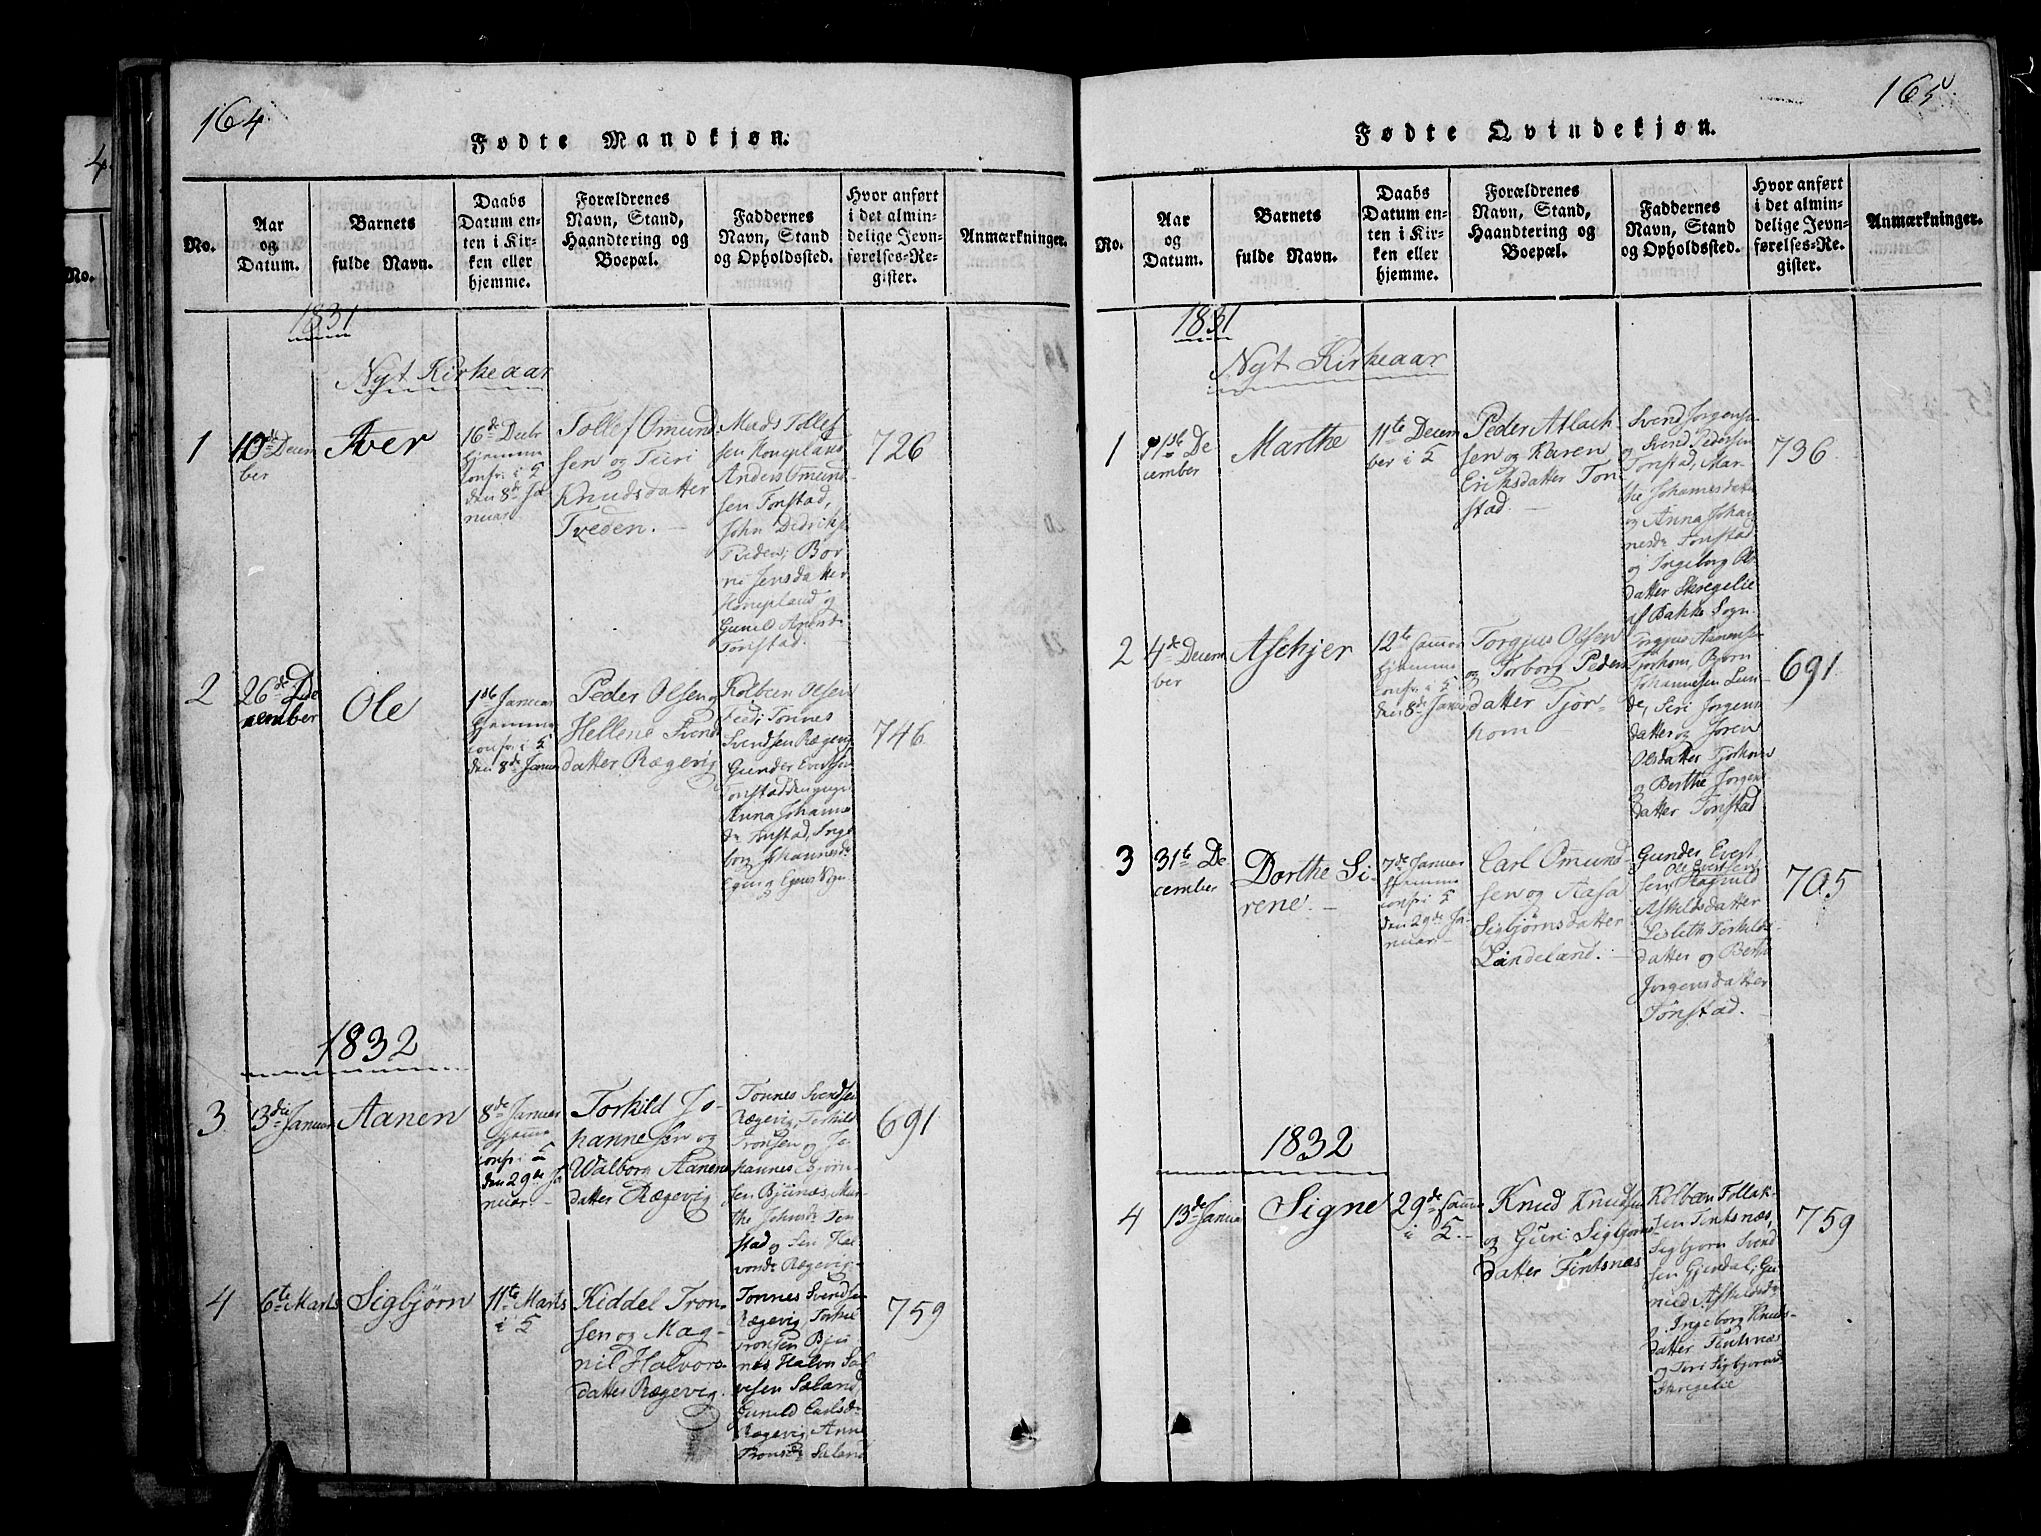 164
Fødte Mandkjøn.
No.
Aar
og
Datum.
Barnets
fulde Navn.
Daabs
Datum en-
ten i Kir-
ken eller
hjemme.
Forældrenes
Navn, Stand,
Haandtering og
Boepæl.
Faddernes
Navn, Stand
og Opholdssted.
Hvor anført
i det almin-
delige Jevn-
førelses-Re-
gister.
Anmærkninger.
1831
Nyt Kirkeaar
1
10de Decem
ber
Iver
16de Decbr
hjemme
confr. i 5
den 8de Ja
nuar
Tollef Omund
sen og Turi
Knudsdatter
Tveden.
Mads Tollef
sen
Anders Omund
sen Tonstad,
John Didriks
Jensdatter
og
Gunild
Tonstad.
726
2
26de De
cember
Ole
1ste Januar
hjemme
confr. i 5
den 8de Januar
Peder Olsen og
Hellene Svends
datter Rægevig
Kolben Olsen
Tønnes
Svendsen Rægevig
Gunder Evertsen
Tonstad
Anna Johannes
dr Tonstad, Inge
borg Johannesdr
746
1832
3
3die Januar
Aanen
8de Januar
hjemme
confr. i 5
den 29de Ja
nuar
Torkild Jo-
hannesen og
Walborg Aanens
datter Rægevig
Tønnes Svendsen
Rægevig, Torkild
Tronsen og Jo-
hannes Bjørn-
sen Bjunæs, Mar
the Johnsdr Ton
stad og
Rægevig
691
4
6te Marts
Sigbjørn
11te Marts
i 5
Kiddel Tron-
sen og Mag-
nil Halvors-
datter Rægevig.
Tonnes Svendsen
Rægevig Torkil
Tronsen Bju
næs Halvor Sal
vesen Saland
Gunild Carlsdr
Rægevig, Anne
Tronsdr Saland
759
165
Fødte Qvindekjøn.
No.
Aar
og
Datum.
Barnets
fulde Navn.
Daabs
Datum en-
ten i Kir-
ken eller
hjemme.
Forældrenes
Navn, Stand,
Haandtering og
Boepæl.
Faddernes
Navn, Stand
og Opholdssted.
Hvor anført
i det almin-
delige Jevn-
førelses-Re-
gister.
Anmærkninger.
1831
Nyt Kirkeaar
1
1ste De
cember
Marthe
11te Decem
ber i 5
Peder Atlach
sen og Karen
Eriksdatter Ton
stad.
Svend Jorgensen
og Svend Pedersen
Tonstad, Mar
the Johannesdatter
og Anna Johan
nesdr Tonstad
og Ingeborg Ols
datter Skregelie
af Bakke Sogn
736
2
4de Decem
ber
Aschjer
12te
hjemme
confr. i 5
den 8de Januar
Torgjus Olsen
og Torborg Peders
datter Tjor-
hom
Torgjus Aanensen
Tjorhom, Bjorn
Johannesen Lun-
de, Siri Jorgens
datter og Joren
Olsdatter Tjorhom
og Berthe Jorgens
datter Tonstad
691
3
31te De
cember
Dorthe Si-
rene.
7de Januar
hjemme
confr. i 5
den 29de Ja-
nuar
Carl Omund-
sen og Aasa
Sigbjørnsdatter
Lindeland.
Gunder Evert
Ole Evertsen
sen,
Askildsdatter
Lisbeth Torkilds
datter og Bertha
Jorgensdatter
Tonstad.
705
1832
4
13de Januar
Signe
29de
i 5.
Knud Knudsen
og Guri Sigbjørns
datter Fintsnæs
Kolbeen Tollak-
sen Fintsnæs,
Sigbjorn Svend
sen Gjendal, Gu
nild Askildsdr
og Ingeborg Knuds-
datter Fintsnæs
og Siri Sigbjornsd
Skregelie
759